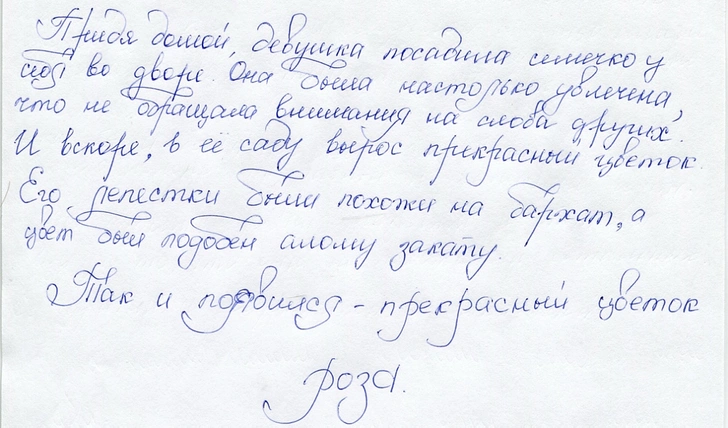 Придя домой, девушка посадила семечко у
себя во дворе. Она была настолько увлечена,
что не обращала внимания на слова других.
И вскоре, в её саду вырос прекрасный цветок.
Его лепестки были похожи на бархат, а
цвет был подобен алому закату.
Так и появился - прекрасный цветок
роза.